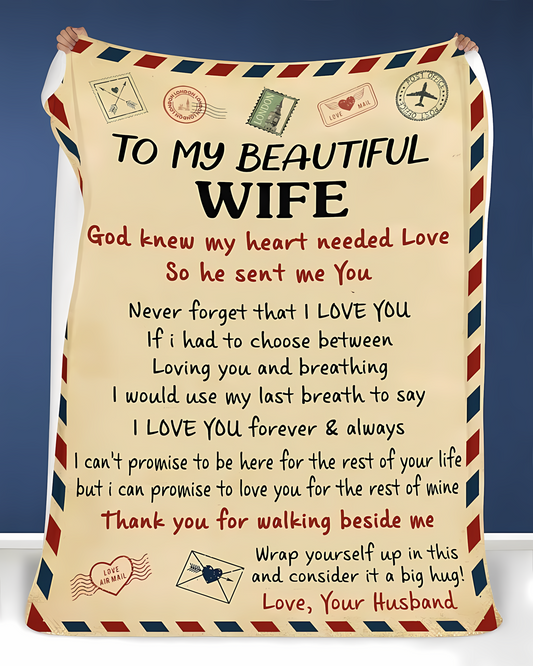 LONDON LONDON LONDON
LONDON
LOVE MAIL
POST OFFICE
POST OFFICE
TO MY BEAUTIFUL
WIFE
God knew my heart needed Love
So he sent me You
Never forget that I LOVE YOU
If i had to choose between
Loving you and breathing
I would use my last breath to say
I LOVE YOU forever & always
I can't promise to be here for the rest of your life
but i can promise to love you for the rest of mine
Thank you for walking beside me
LOVE
AIR MAIL
Wrap yourself up in this
and consider it a big hug!
Love, Your Husband